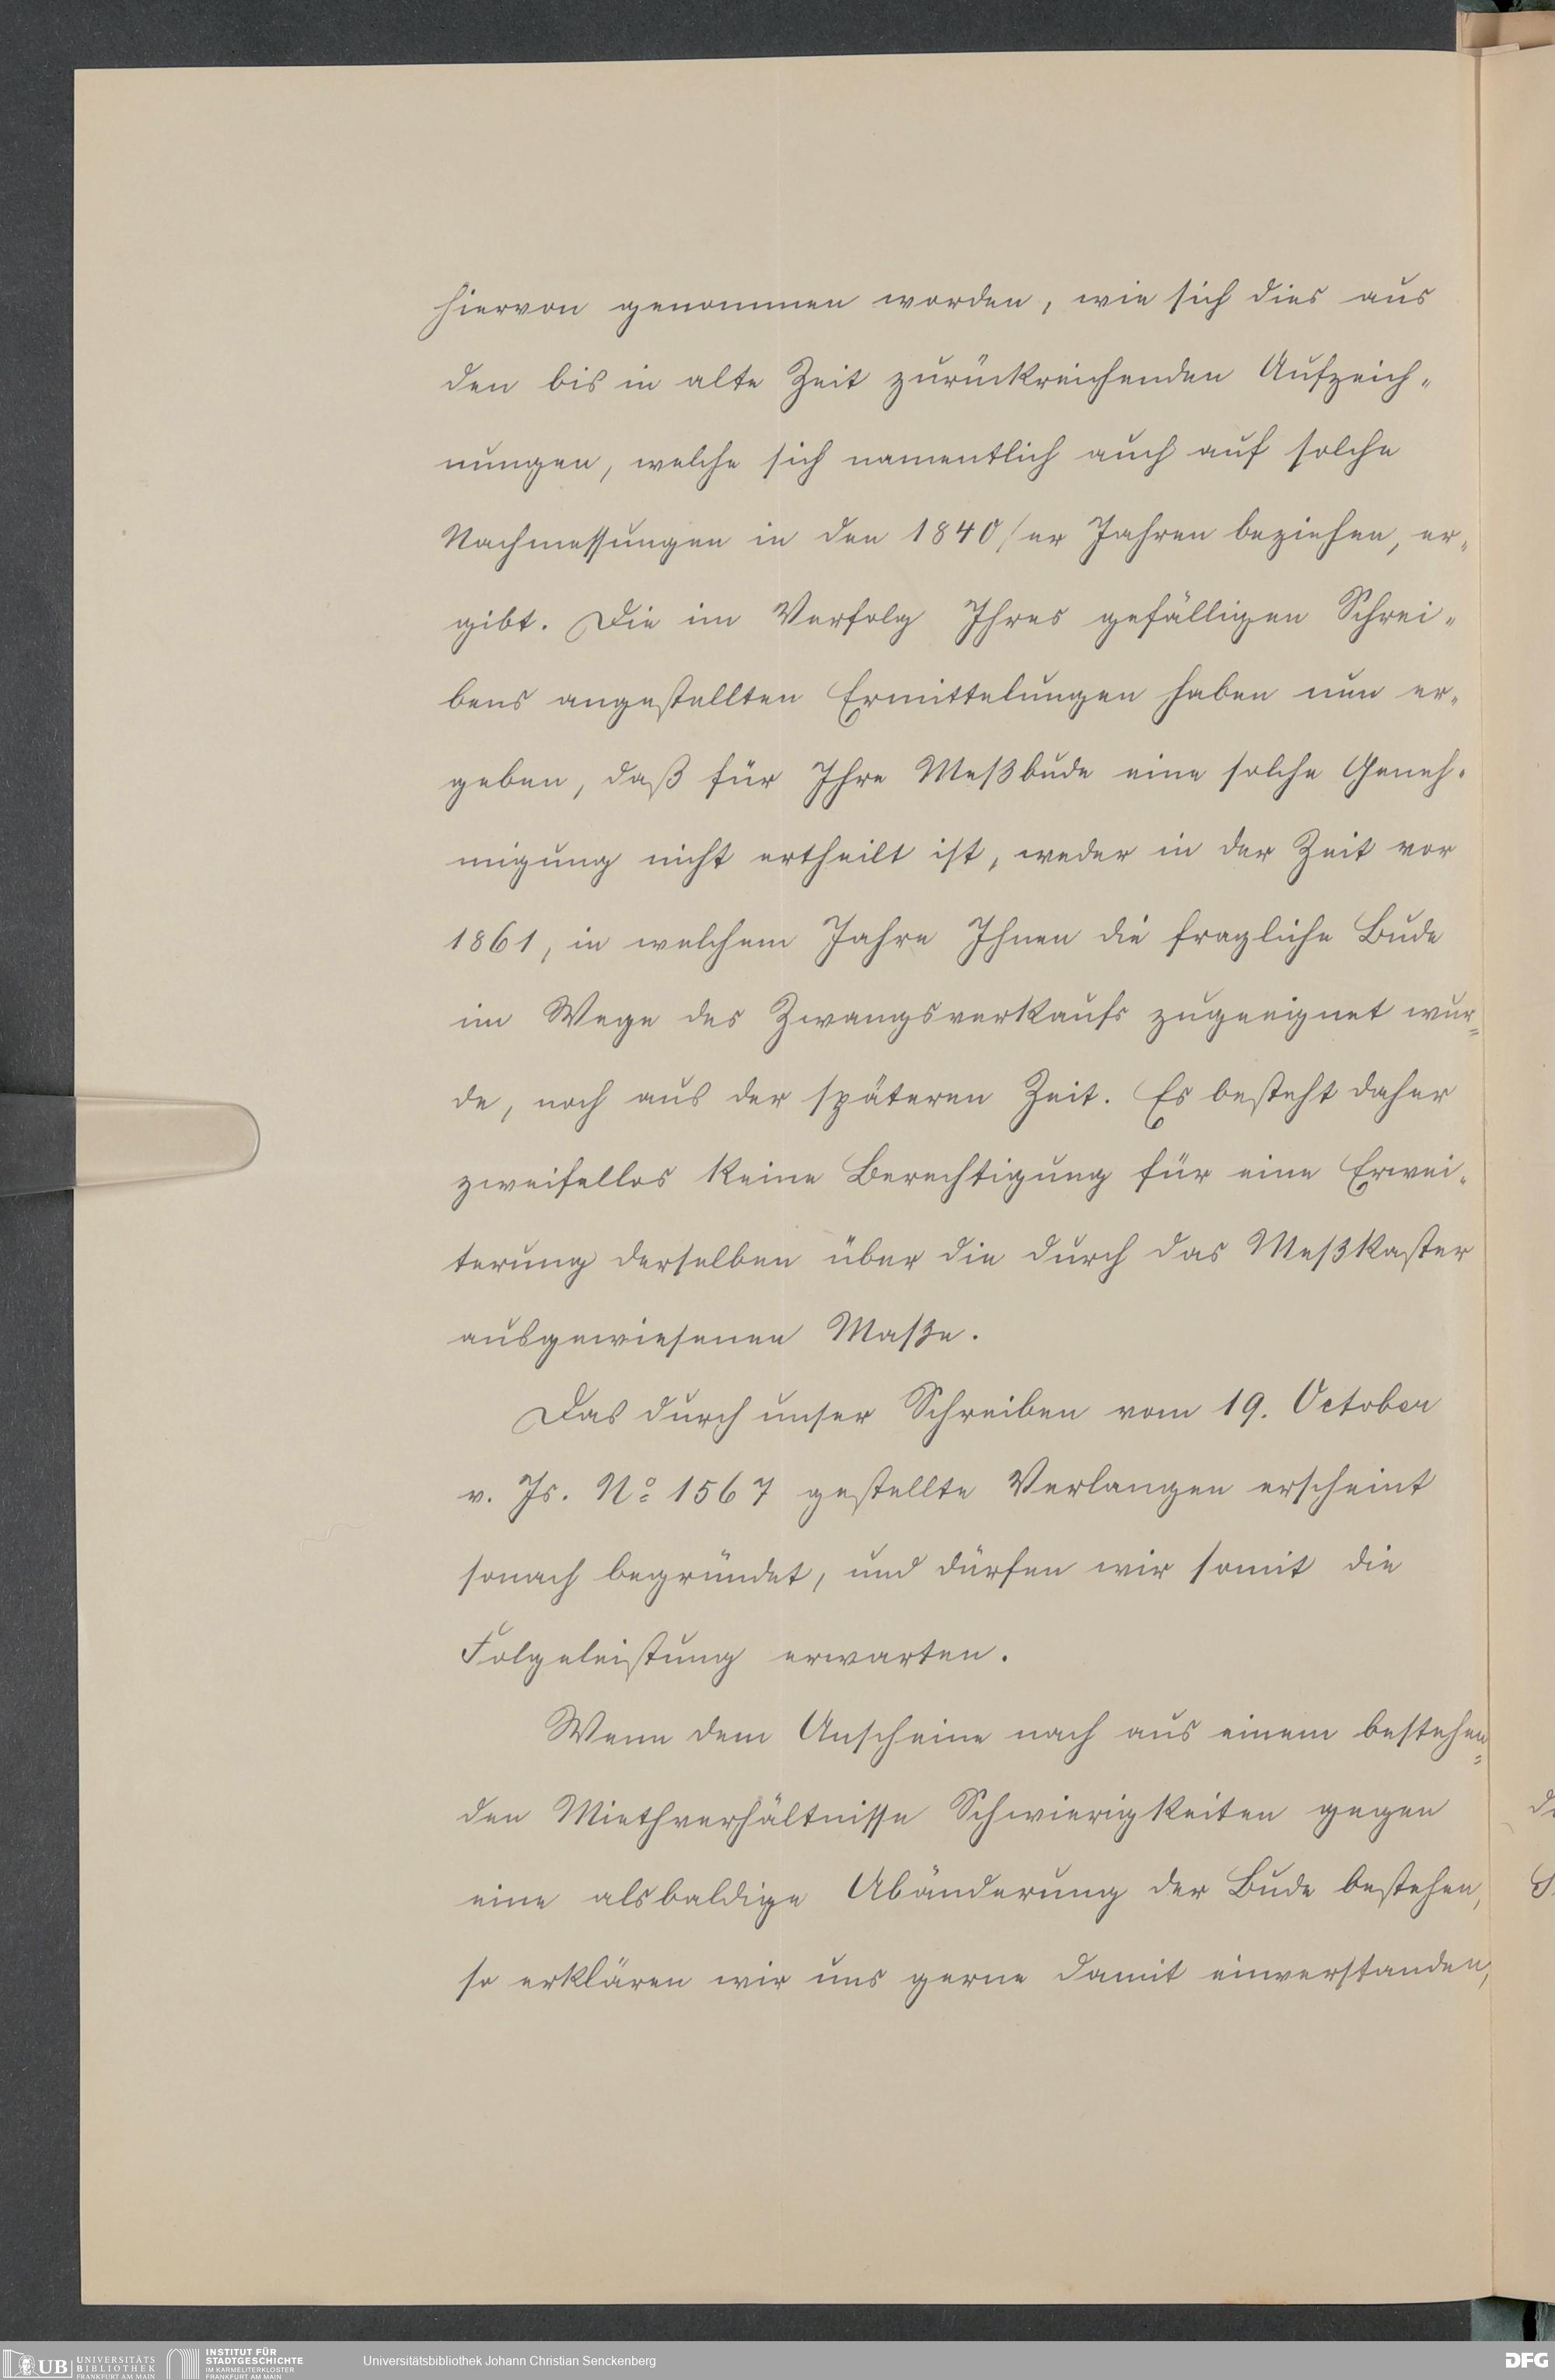 hiervon genommen worden, wie sich dies aus
den bis in alte Zeit zurückreichenden Aufzeich-
nungen, welche sich namentlich auch auf solche
Nachmessungen in den 1840/er Jahren beziehen, er-
gibt. Die im Verfolg Ihres gefälligen Schrei-
bens angestellten Ermittelungen haben nun er-
geben, daß für Ihre Meßbude eine solche Geneh-
migung nicht ertheilt ist, weder in der Zeit vor
1861, in welchem Jahre Ihnen die fragliche Bude
im Wege des Zwangsverkaufs zugeeignet wur-
de, noch aus der späteren Zeit. Es besteht daher
zweifellos keine Berechtigung für eine Erwei-
terung derselben über die durch das Meßkaster
ausgewiesenen Maße.
Das durch unser Schreiben vom 19. October
v. Js. No 1567 gestellte Verlangen erscheint
sonach begründet, und dürfen wir somit die
Folgeleistung erwarten.
Wenn dem Anscheine nach aus einem bestehen-
den Miethverhältnisse Schwierigkeiten gegen
eine alsbaldige Abänderung der Bude bestehen,
so erklären wir uns gerne damit einverstanden,
UB UNIVERSITÄTS
BIBLIOTHEK
FRANKFURT AM MAIN
INSTITUT FÜR
STADTGESCHICHTE
IM KARMELITERKLOSTER
FRANKFURT AM MAIN
Universitätsbibliothek Johann Christian Senckenberg
DFG